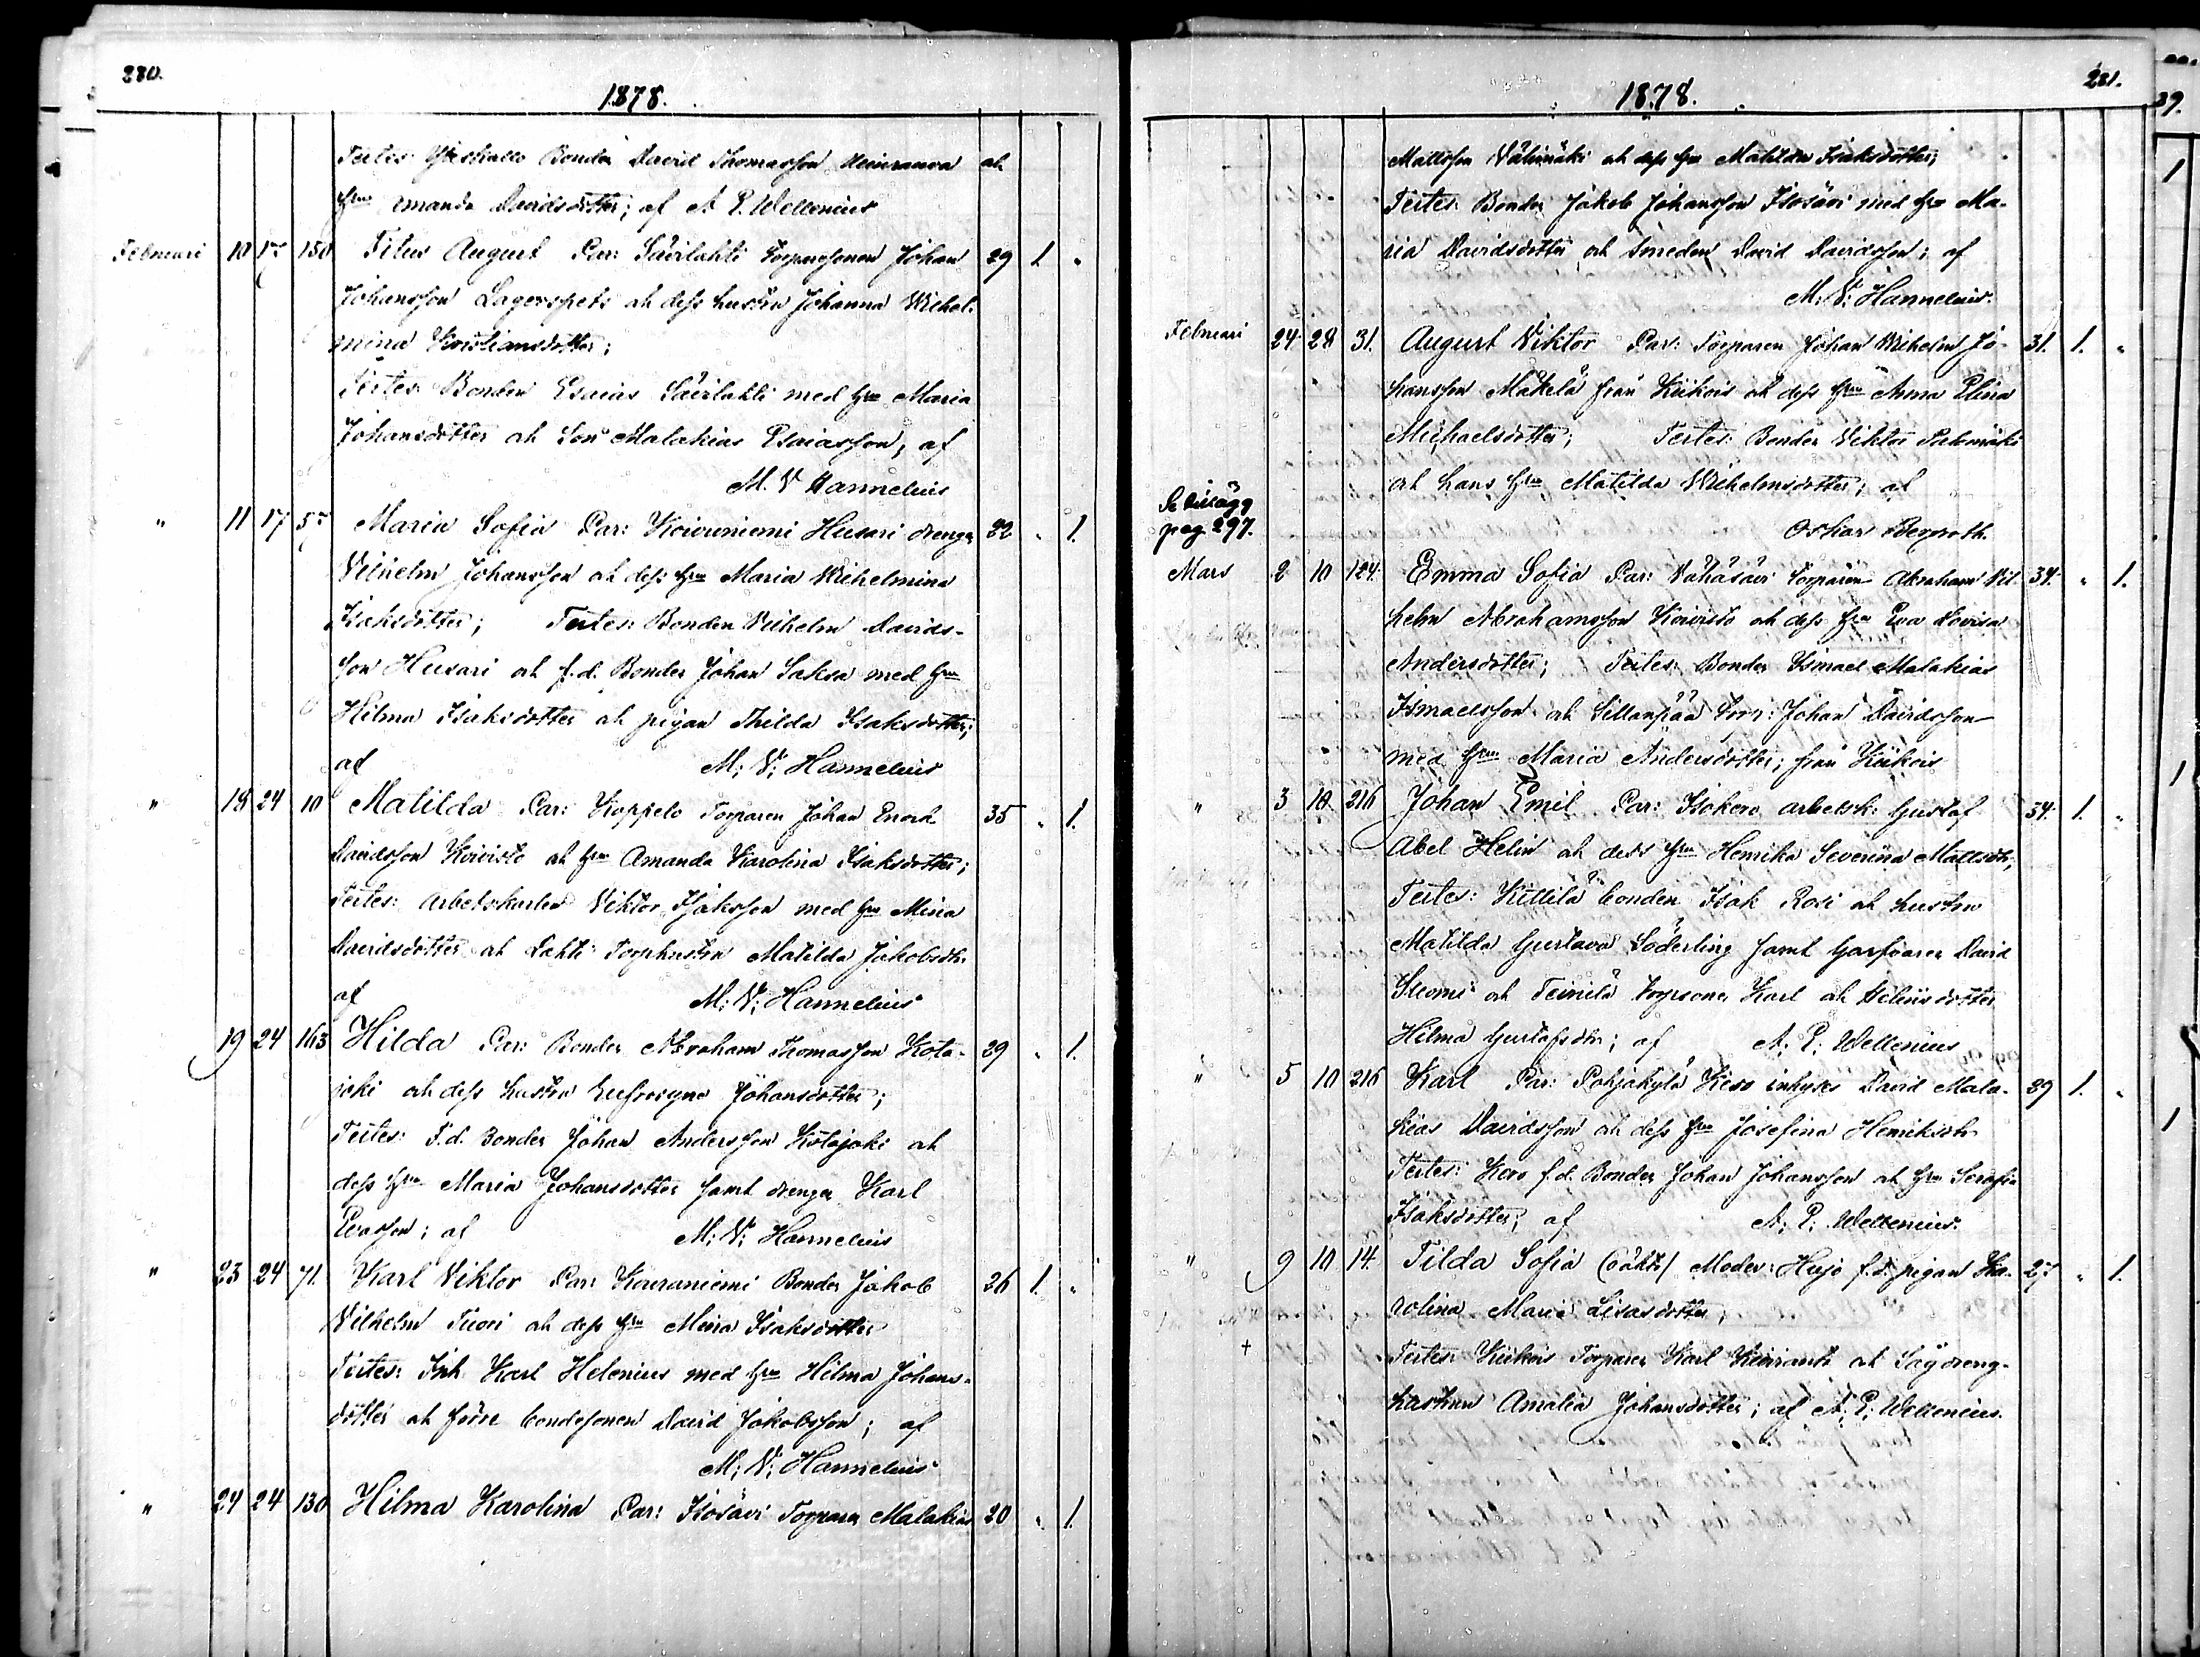 280.
1878.
Testes: Bonden David Thomasson och
Hru Amanda Davidsdotter; af A. P. Wellenius
Februari 10 17 150 Titus August Par: Säirlahti Torparsonen Johan 29 1 "
Johansson Lagerspets och dess hustru Johanna Wilhel-
mina Kristiansdotter;
Testes: Bonden Esaias Säirlahti med Hru Maria
Johansdotter och Son Malakias Esaiasson; af
M. V. Hannelius
" 11 17 57 Maria Sofia Par: Koivuniemi Husari drengen 22 " 1.
Vilhelm Johansson och dess Hru Maria Wilhelmina
Isaksdotter; Testes: Bonden Wilhelm Davids-
son Husari och f.d. Bonden Johan Saksa med Hru
Hilma Isaksdotter och pigan Thilda Isaksdotter;
af M: V: Hannelius
" 18 24 10 Matilda Par: Koppelo Torparen Johan Enock 35 " 1.
Davidsson Koivisto och Hru Amanda Karolina Isaksdotter;
Testes: Arbetskarlen Viktor Isaksson med Hru Mina
Davidsdotter och Lahti Torphustrun Matilda Jakobsdtr
af M: V: Hannelius
19 24 163 Hilda Par: Bonden Abraham Thomasson Kota- 29 " 1.
joki och dess hustru Eufrosyne Johansdotter;
Testes: F.d. Bonden Johan Andersson Kotajoki och
dess Hru Maria Johansdotter samt drengen Karl
Evasson; af M: V: Hannelius
" 23 24 71. Karl Viktor Par: Kauraniemi Bonden Jakob 26 1. "
Vilhelm Tuori och dess Hru Mina Isaksdotter
Testes: Inh. Karl Helenius med Hru Hilma Johans-
dotter och förre bondesonen David Jakobsson; af
M: V: Hannelius
" 24 24 130 Hilma Karolina Par: Isosävi Torparen Malakias 20 " 1.
281.
1878.
Mattsson Välimäki och dess Hru Matilda Isaksdotter;
Testes: Bonden Jakob Johansson Isosävi med Hru Ma-
ria Davidsdotter och Smeden David Davidsson; af
M: V: Hannelius.
Februari 24 28 31. August Viktor Par: Torparen Johan Wilhelm Jo- 31. 1. "
hansson Mäkelä från Kiikois och dess Hru Anna Elina
Michaelsdotter; Testes: Bonden Viktor Palomäki
och hans Hru Matilda Wilhelmsdotter; af
Se tillägg
pag 297.
Oskar Bergroth.
Mars 2 10 124. Emma Sofia Par: Vähäsävi Torparen Abraham Vil- 34. " 1.
helm Abrahamsson Koivisto och dess Hru Eva Lovisa
Andersdotter; Testes: Bonden Ismael Malakias
Ismaelsson och Sillanpää Sonen: Johan Davidsson
med Hru Maria Andersdotter; från Kiikois
" 3 10 216 Johan Emil Par: Isokero arbetsk: Gustaf 34. 1. "
Abel Helin och dess Hru Henrika Severina Mattsdtr;
Testes: Kittilä bonden Isak Rosi och hustru
Matilda Gustava Söderling samt Garfvaren David
Suomi och Teinilä torpsonen Karl och Helins dotter
Hilma Gustafsdtr; af A: P: Wellenius
" 5 10 216 Karl Par: Pohjakylä Kero inhyses David Mala- 39 1. "
kias Davidsson och dess Hru Josefina Henriksdtr
Testes: Kero f.d. Bonden Johan Johansson och Hru Serafia
Isaksdotter; af A: P: Wellenius.
" 9 10 14. Tilda Sofia (oäkta) Moder: Hujo f.d. pigan Ka- 27 " 1.
rolina Maria Lisasdotter;
+
Testes: Kiikois Torparen Karl och Säg dreng-
hustrun Amalia Johansdotter; af A: P: Wellenius.
39.
1
1
1